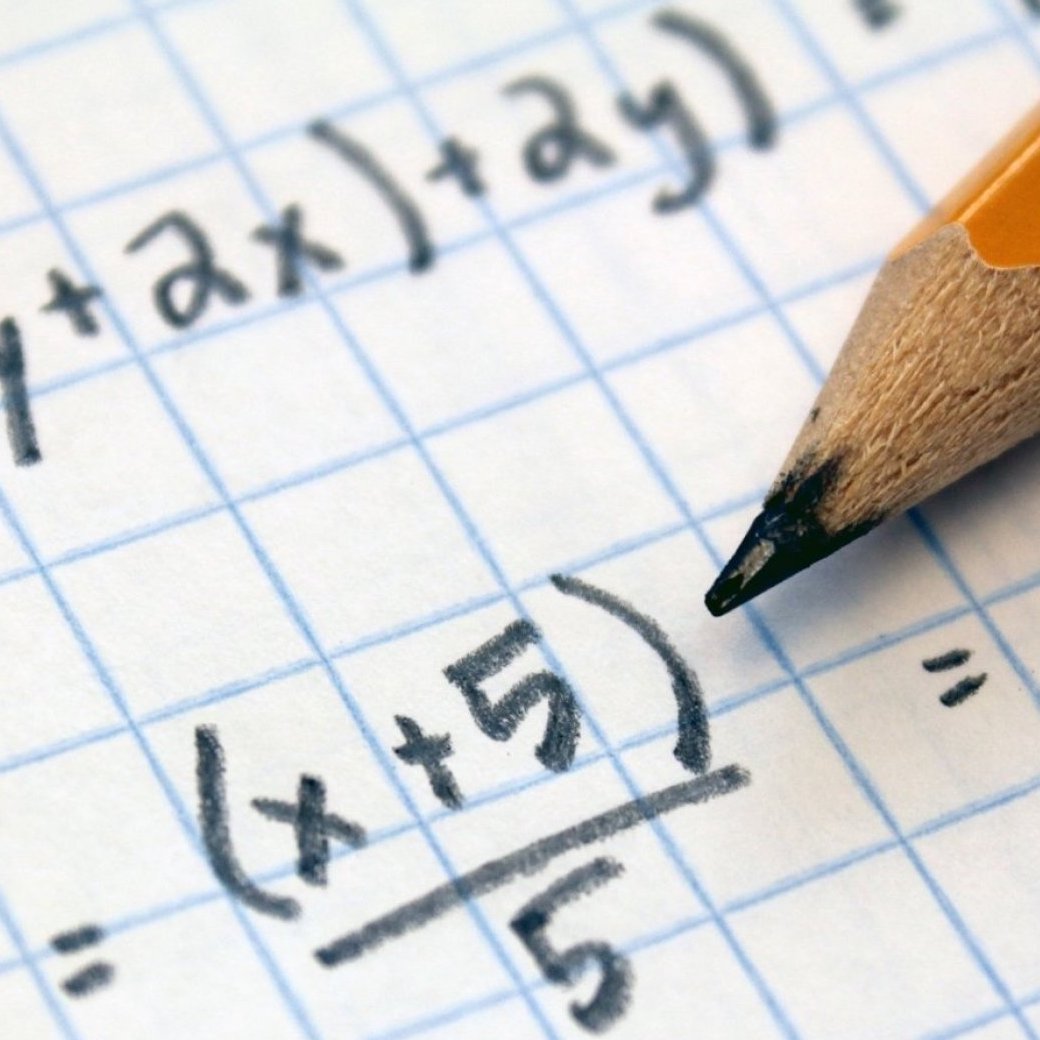 +2x)+2y)
= (x+5) =
5